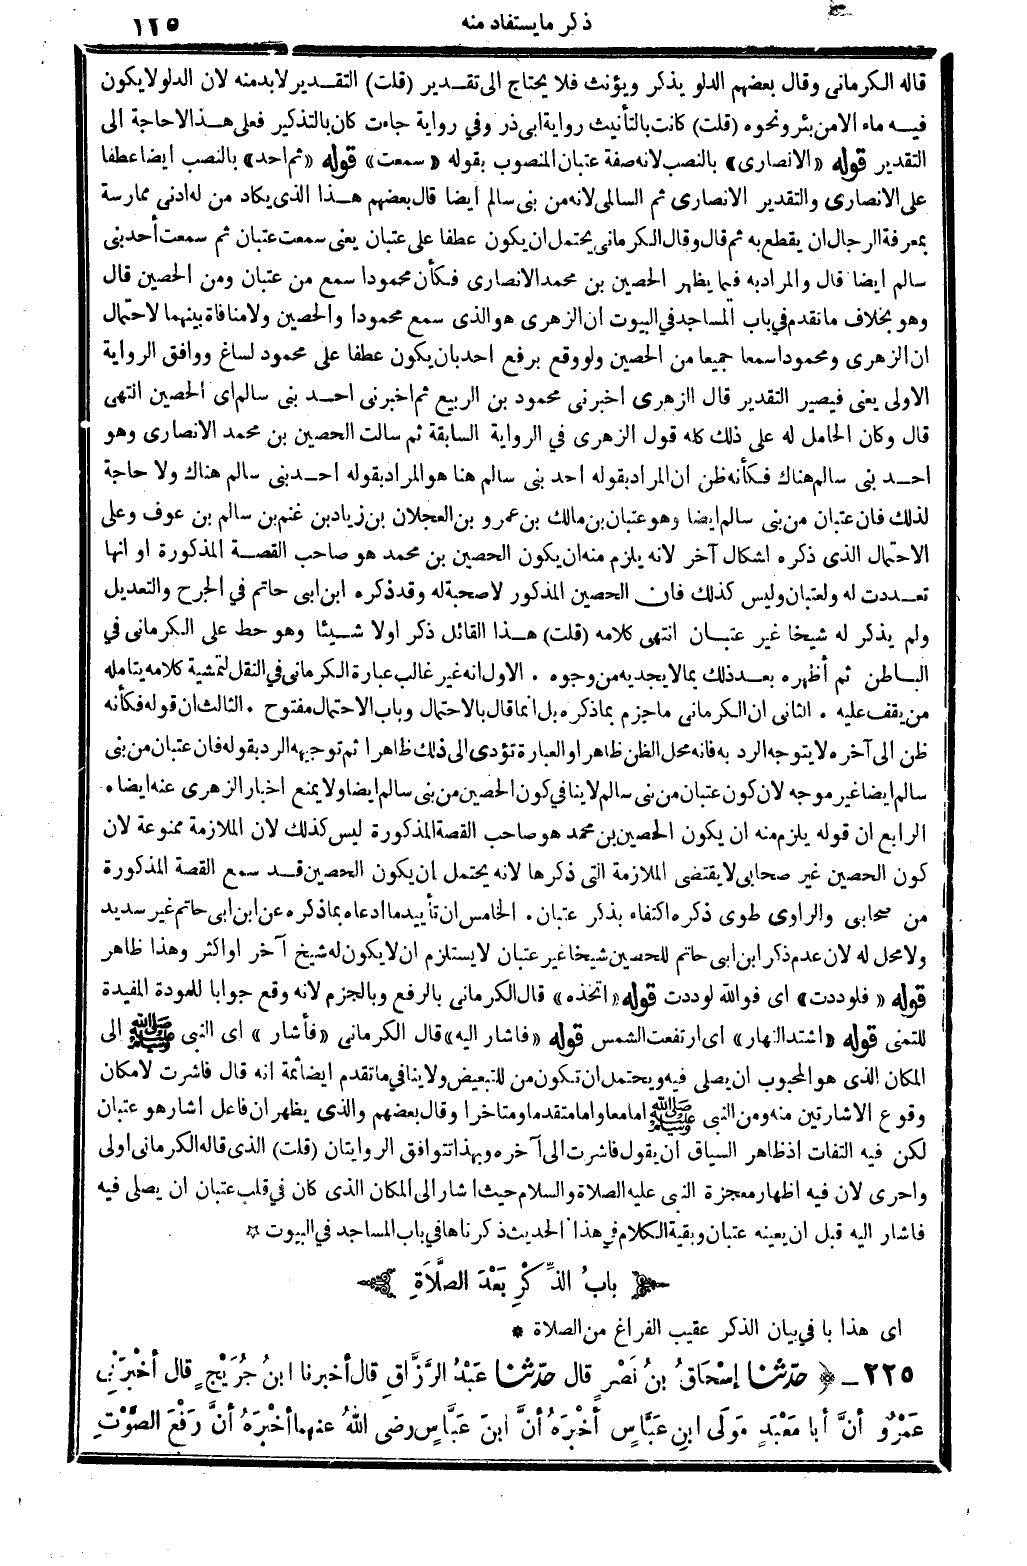 ذكر ما يستفاد منه ١٢٥
قاله الكرماني وقال بعضهم الدلو يذكر ويؤنث فلا يحتاج الى تقدير (قلت) التقدير لا بد منه لان الدلو لا يكون
فيه ماء الا من بئر ونحوه (قلت) كانت بالتأنيث رواية ابى ذر وفي رواية جاءت كان بالتذكير فعلى هذا لا حاجة الى
التقدير قوله «الانصارى» بالنصب لانه صفة عتبان المنصوب بقوله «سمعت» قوله «ثم احد» بالنصب ايضا عطفا
على الانصارى والتقدير الانصارى ثم السالمى لانه من بنى سالم أيضا قال بعضهم هذا الذى يكاد من له ادنى ممارسة
بمعرفة الرجال ان يقطع به ثم قال وقال الكرماني يحتمل ان يكون عطفا على عتبان يعنى سمعت عتبان ثم سمعت أحد بنى
سالم ايضا قال والمراد به فيما يظهر الحصين بن محمد الانصارى فكأن محمودا سمع من عتبان ومن الحصين قال
وهو بخلاف ما تقدم في باب المساجد في البيوت ان الزهرى هو الذى سمع محمودا والحصين ولا منافاة بينهما لاحتمال
ان الزهرى ومحمودا سمعا جميعا من الحصين ولو وقع برفع احد بان يكون عطفا على محمود لساغ ووافق الرواية
الاولى يعنى فيصير التقدير قال الزهرى اخبرنى محمود بن الربيع ثم اخبرنى احد بنى سالم اى الحصين انتهى
قال وكان الحامل له على ذلك كله قول الزهرى في الرواية السابقة ثم سالت الحصين بن محمد الانصارى وهو
احد بنى سالم هناك فكأنه ظن ان المراد بقوله احد بنى سالم هنا هو المراد بقوله احد بنى سالم هناك ولا حاجة
لذلك فان عتبان من بنى سالم ايضا وهو عتبان بن مالك بن عمرو بن العجلان بن زياد بن غنم بن سالم بن عوف وعلى
الاحتمال الذى ذكره اشكال آخر لانه يلزم منه ان يكون الحصين بن محمد هو صاحب القصة المذكورة او انها
تعددت له ولعتبان وليس كذلك فان الحصين المذكور لا صحبة له وقد ذكره ابن ابى حاتم في الجرح والتعديل
ولم يذكر له شيخا غير عتبان انتهى كلامه (قلت) هذا القائل ذكر اولا شيئا وهو حط على الكرماني في
الباطن ثم أظهره بعد ذلك بما لا يجديه من وجوه . الاول انه غير غالب عبارة الكرماني في النقل لتمشية كلامه يتامله
من يقف عليه . الثانى ان الكرماني ما جزم بما ذكره بل انما قال بالاحتمال وباب الاحتمال مفتوح . الثالث ان قوله فكأنه
ظن الى آخره لا يتوجه الرد به فانه محل الظن ظاهرا والعبارة تؤدى الى ذلك ظاهرا ثم توجيهه الرد بقوله فان عتبان من بنى
سالم ايضا غير موجه لان كون عتبان من بنى سالم لا ينافي كون الحصين من بنى سالم ايضا ولا يمنع اخبار الزهرى عنه ايضا .
الرابع ان قوله يلزم منه ان يكون الحصين بن محمد هو صاحب القصة المذكورة ليس كذلك لان الملازمة ممنوعة لان
كون الحصين غير صحابى لا يقتضى الملازمة التى ذكرها لانه يحتمل ان يكون الحصين قد سمع القصة المذكورة
من صحابى والراوى طوى ذكره اكتفاء بذكر عتبان . الخامس ان تأييد ما ادعاه بما ذكره عن ابن ابى حاتم غير سديد
ولا محل له لان عدم ذكر ابن ابى حاتم للحصين شيخا غير عتبان لا يستلزم ان لا يكون له شيخ آخر او اكثر وهذا ظاهر
قوله «فلوددت» اى فوالله لوددت قوله «اتخذه» قال الكرماني بالرفع وبالجزم لانه وقع جوابا للمودة المفيدة
للتمنى قوله «اشتد النهار» اى ارتفعت الشمس قوله «فاشار اليه» قال الكرماني «فأشار» اى النبى ﷺ الى
المكان الذى هو المحبوب ان يصلى فيه ويحتمل ان تكون من للتبعيض ولا ينافي ما تقدم ايضا ثمة انه قال فاشرت لامكان
وقوع الاشارتين منه ومن النبى ﷺ اما معا واما متقدما ومتاخرا وقال بعضهم والذى يظهر ان فاعل اشار هو عتبان
لكن فيه التفات اذ ظاهر السياق أن يقول فاشرت الى آخره وبهذا تتوافق الروايتان (قلت) الذى قاله الكرمانى اولى
واحرى لان فيه اظهار معجزة النبى عليه الصلاة والسلام حيث اشار الى المكان الذى كان في قلب عتبان ان يصلى فيه
فاشار اليه قبل ان يعينه عتبان وبقية الكلام في هذا الحديث ذكرناها في باب المساجد في البيوت ☆
﴿ بابُ الذِّكْرِ بَعْدَ الصَّلَاةِ ﴾
اى هذا با في بيان الذكر عقيب الفراغ من الصلاة *
٢٢٥ ــ ﴿ حدّثنا إسْحَاقُ بنُ نَصْرٍ قال حدّثنا عَبْدُ الرَّزَّاقِ قال أخبرنا ابنُ جُرَيْجٍ قال أخْبَرَنِي
عَمْرٌو أنَّ أبا مَعْبَدٍ مَوْلَى ابنِ عَبَّاسٍ أخْبَرَهُ أنَّ ابنَ عَبَّاسٍ رضى اللهُ عنهما أخْبَرَهُ أنَّ رَفْعَ الصَّوْتِ